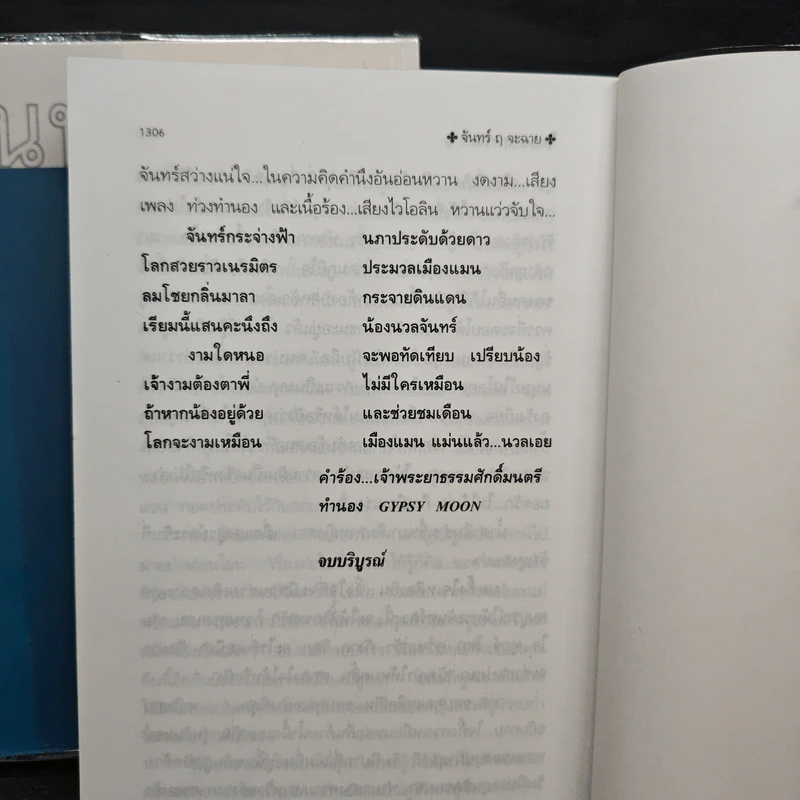 1306 ✤ จันทร์ ฤ จะฉาย ✤
จันทร์สว่างแน่ใจ...ในความคิดคำนึงอันอ่อนหวาน งดงาม...เสียง
เพลง ท่วงทำนอง และเนื้อร้อง...เสียงไวโอลิน หวานแว่วจับใจ...
จันทร์กระจ่างฟ้า นภาประดับด้วยดาว
โลกสวยราวเนรมิตร ประมวลเมืองแมน
ลมโชยกลิ่นมาลา กระจายดินแดน
เรียมนี้แสนคะนึงถึง น้องนวลจันทร์
งามใดหนอ จะพอทัดเทียบ เปรียบน้อง
เจ้างามต้องตาพี่ ไม่มีใครเหมือน
ถ้าหากน้องอยู่ด้วย และช่วยชมเดือน
โลกจะงามเหมือน เมืองแมน แม่นแล้ว...นวลเอย
คำร้อง...เจ้าพระยาธรรมศักดิ์มนตรี
ทำนอง GYPSY MOON
จบบริบูรณ์